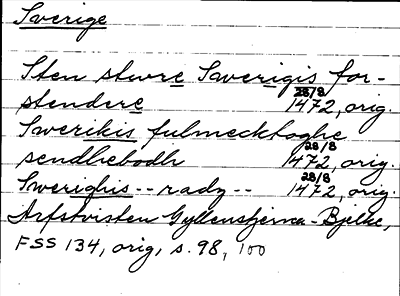 Sverige
Sten sture Swerigis for-
stendere 28/8 1472, orig.
Swerikis fulmecktoghe
sendhebodh 28/8 1472, orig.
Swerighis -- radz -- 28/8 1472, orig.
Arfstvisten Gyllenstjerna - Bjelke,
FSS 134, orig, s. 98, 100